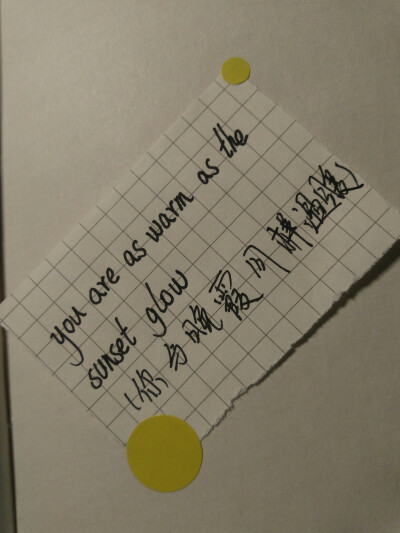 you are as warm as the
sunset glow
(你与晚霞同样温暖)